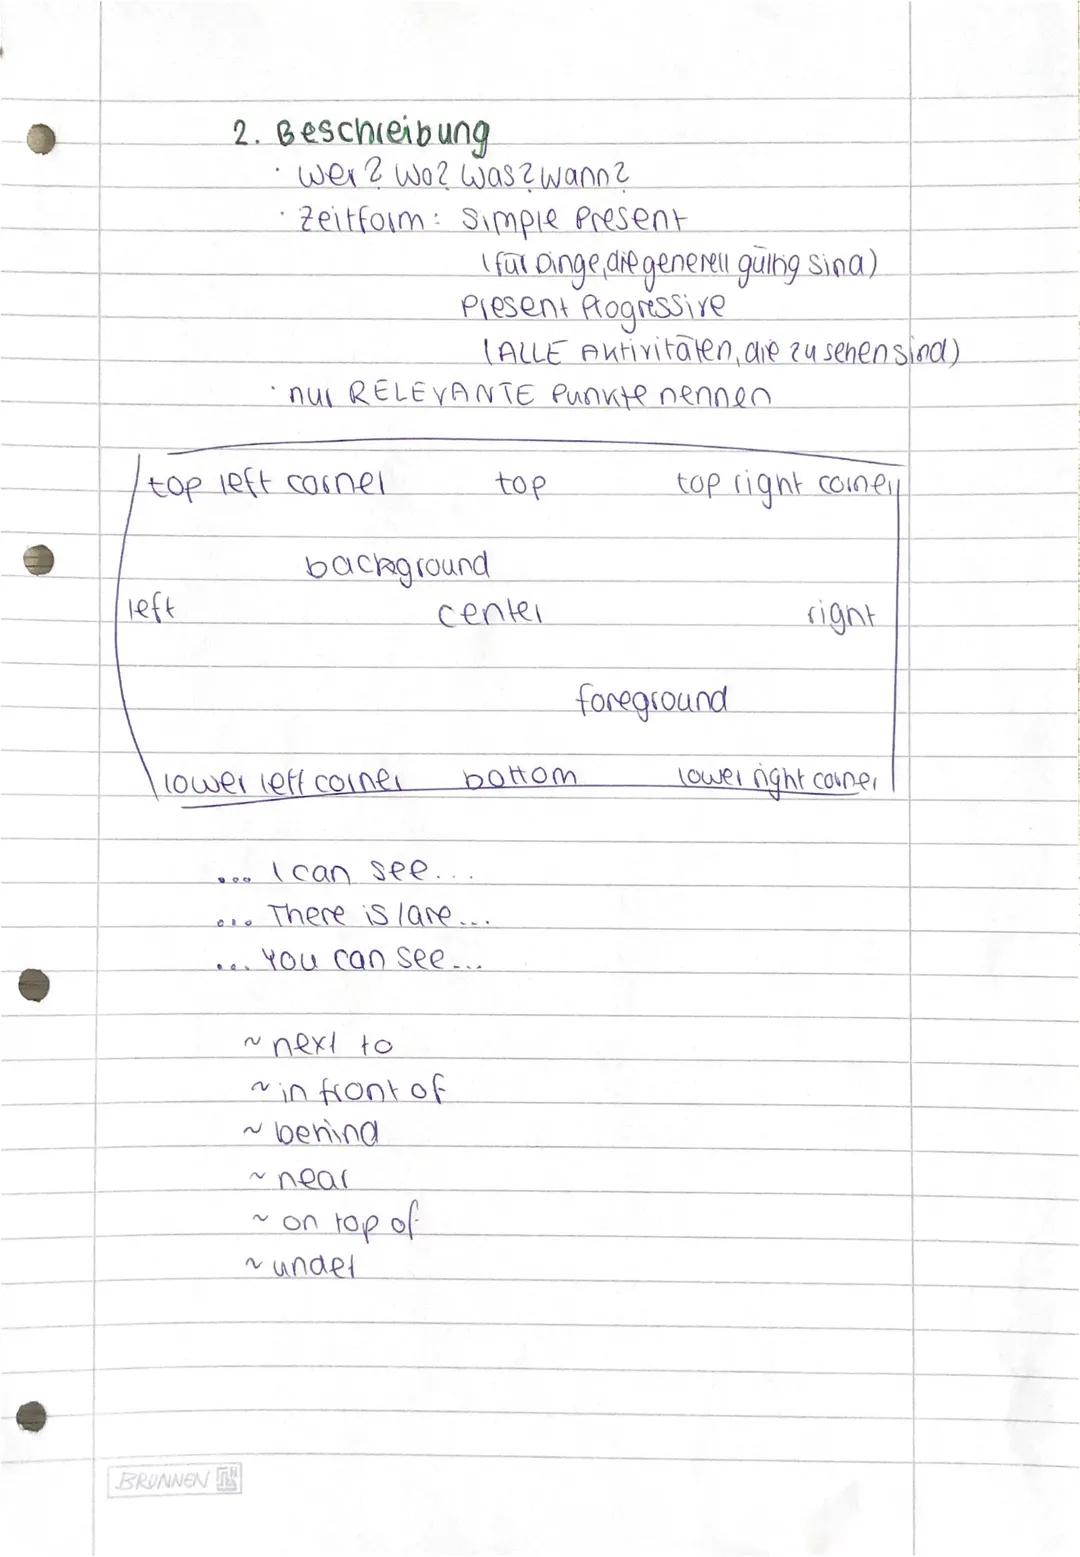 2. Beschreibung
· Wer? Wo? Was? Wann?
· Zeitform: Simple Present
(für Dinge, die generell gültig sind)
Present Progressive
(ALLE Aktivitäten, die zu sehen sind)
· nur RELEVANTE Punkte nennen
top left corner top top right corner
background
left center right
foreground
lower left corner bottom lower right corner
... I can see...
... There is/are...
... You can see...
~ next to
~ in front of
~ behind
~ near
~ on top of
~ under
BRUNNEN